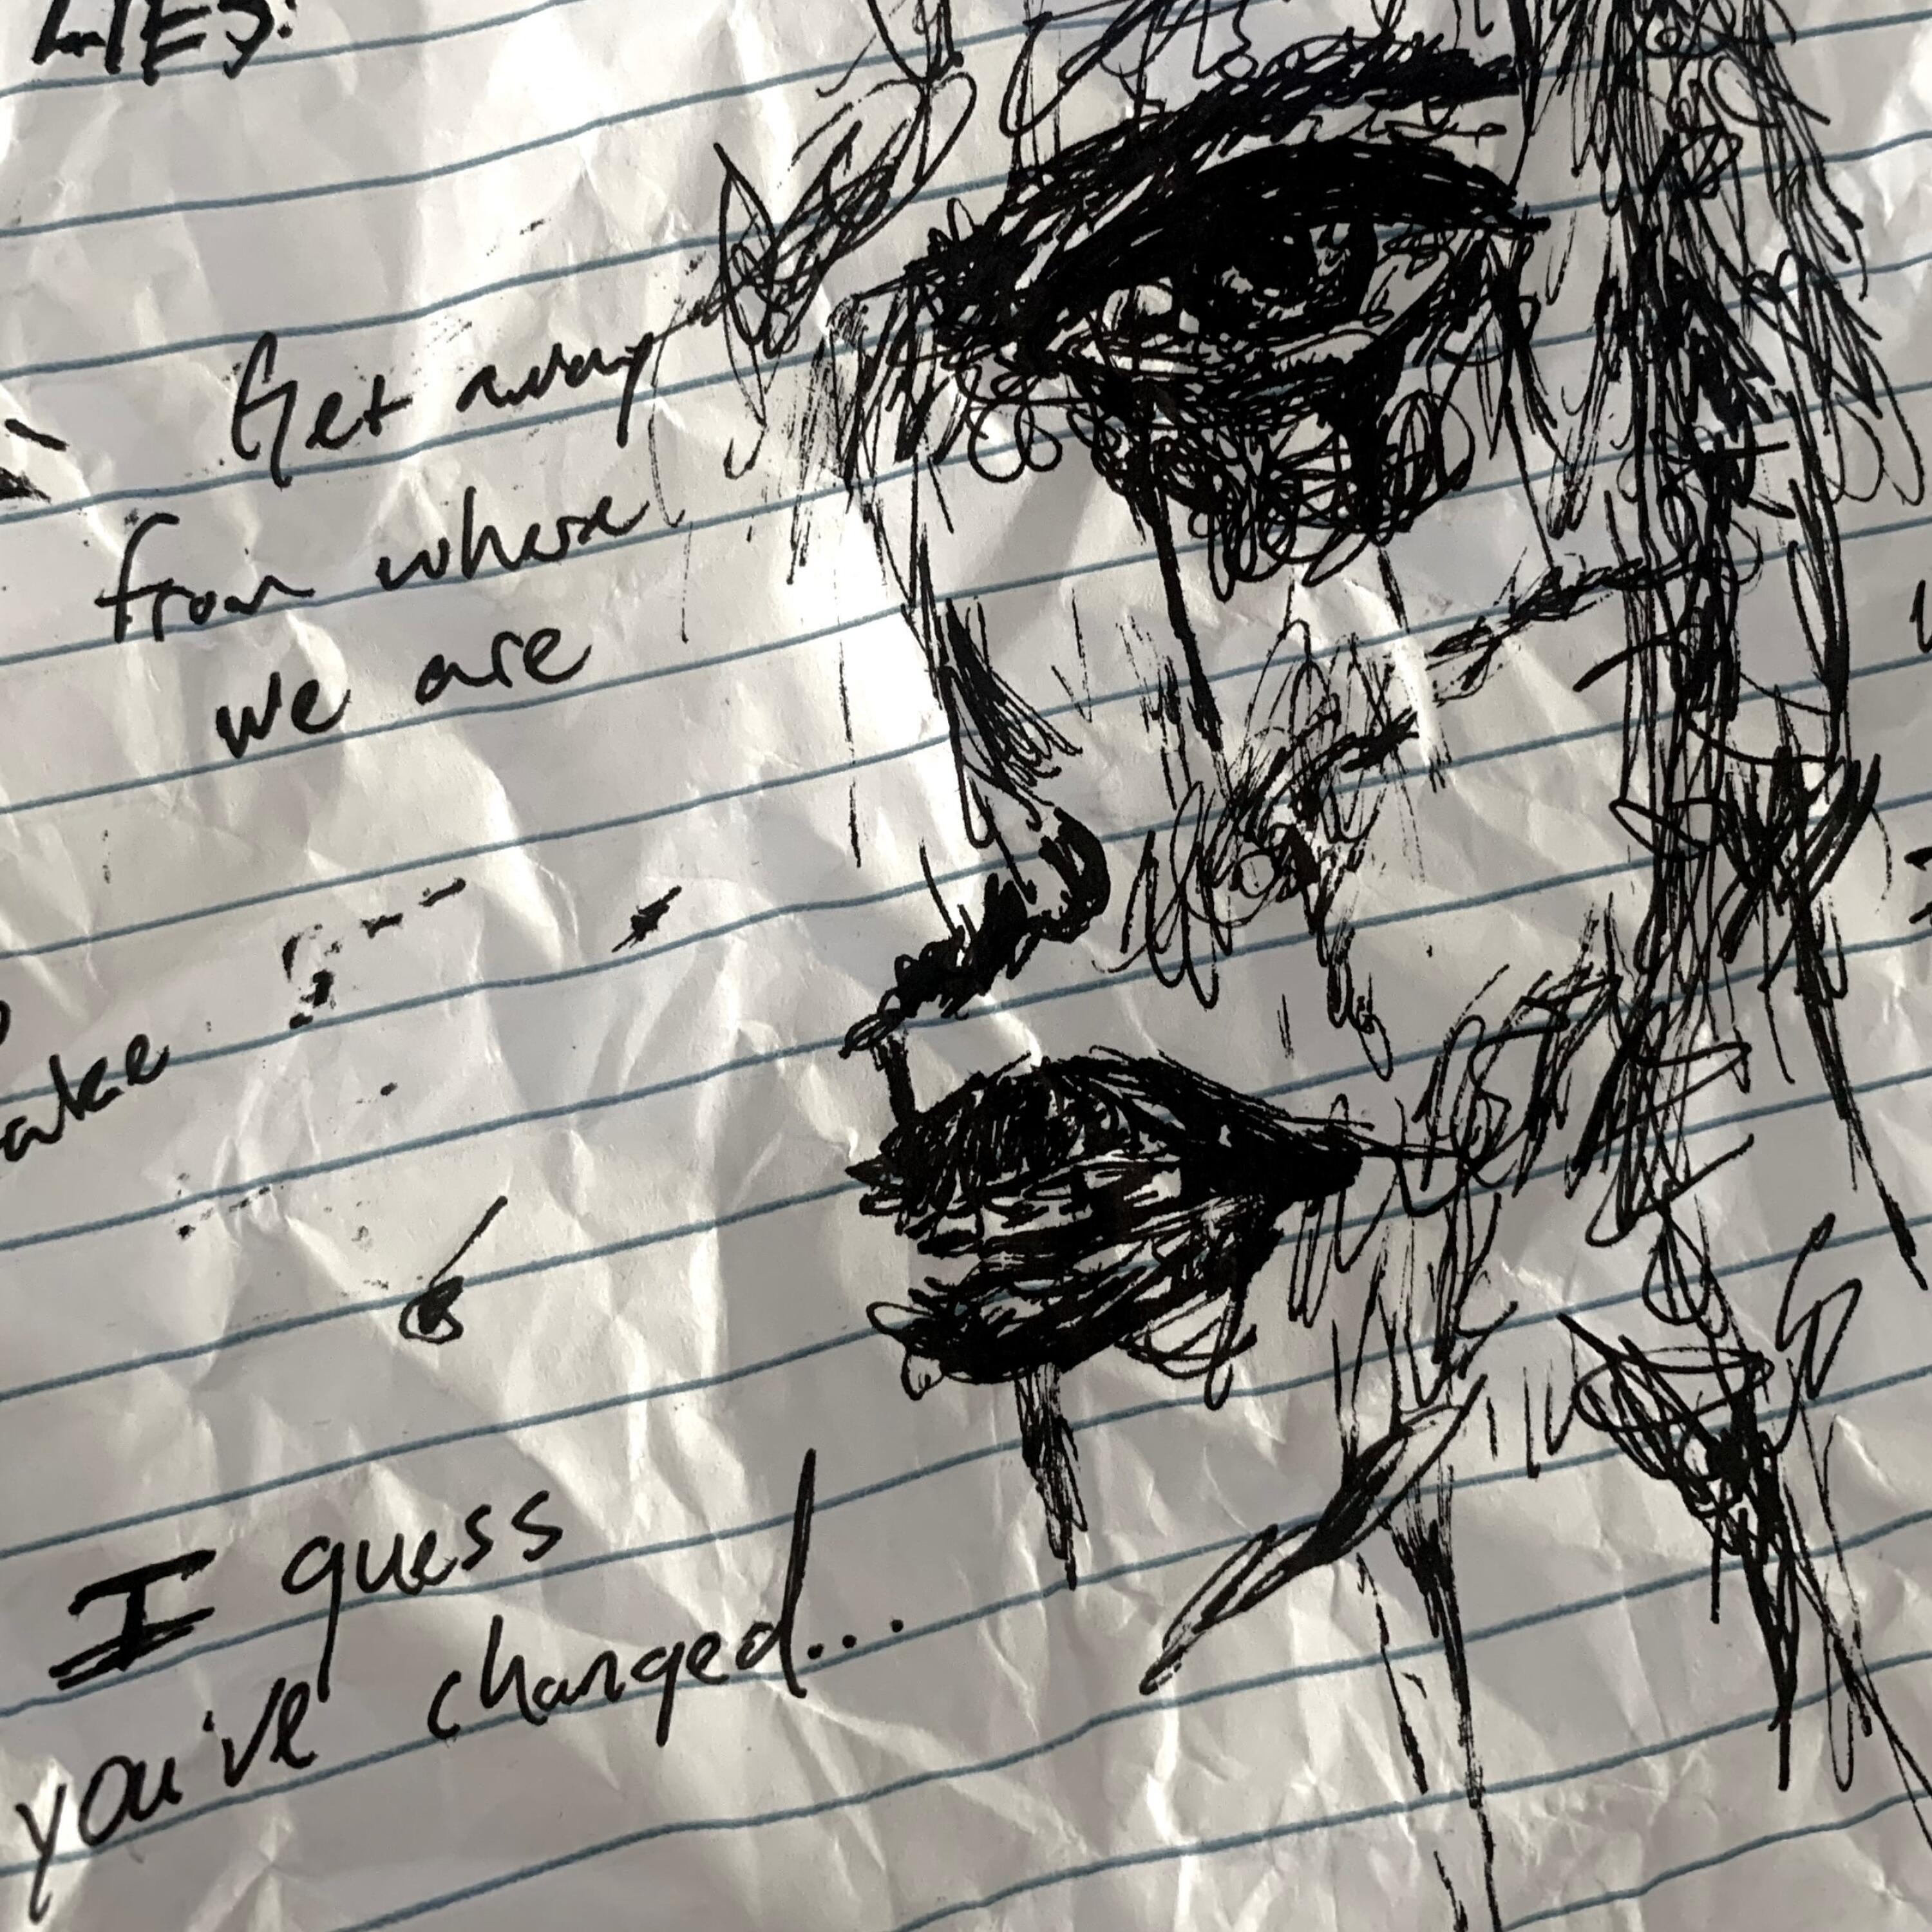 LIES:
Get away
from where
we are
ake
I guess
you've changed...